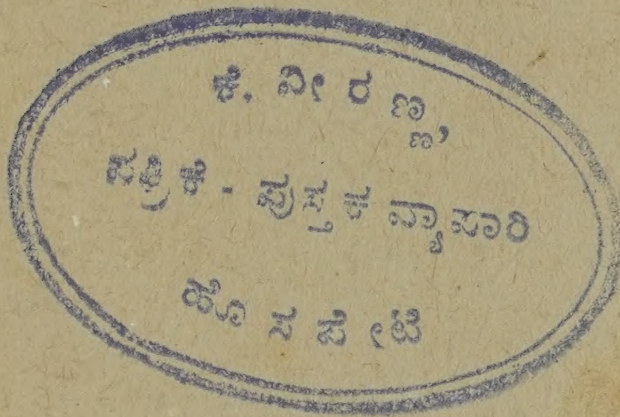 ಕೆ. ವೀರಣ್ಣ,
ಪತ್ರಿಕೆ - ಪುಸ್ತಕ ವ್ಯಾಪಾರಿ
ಹೊಸಪೇಟೆ